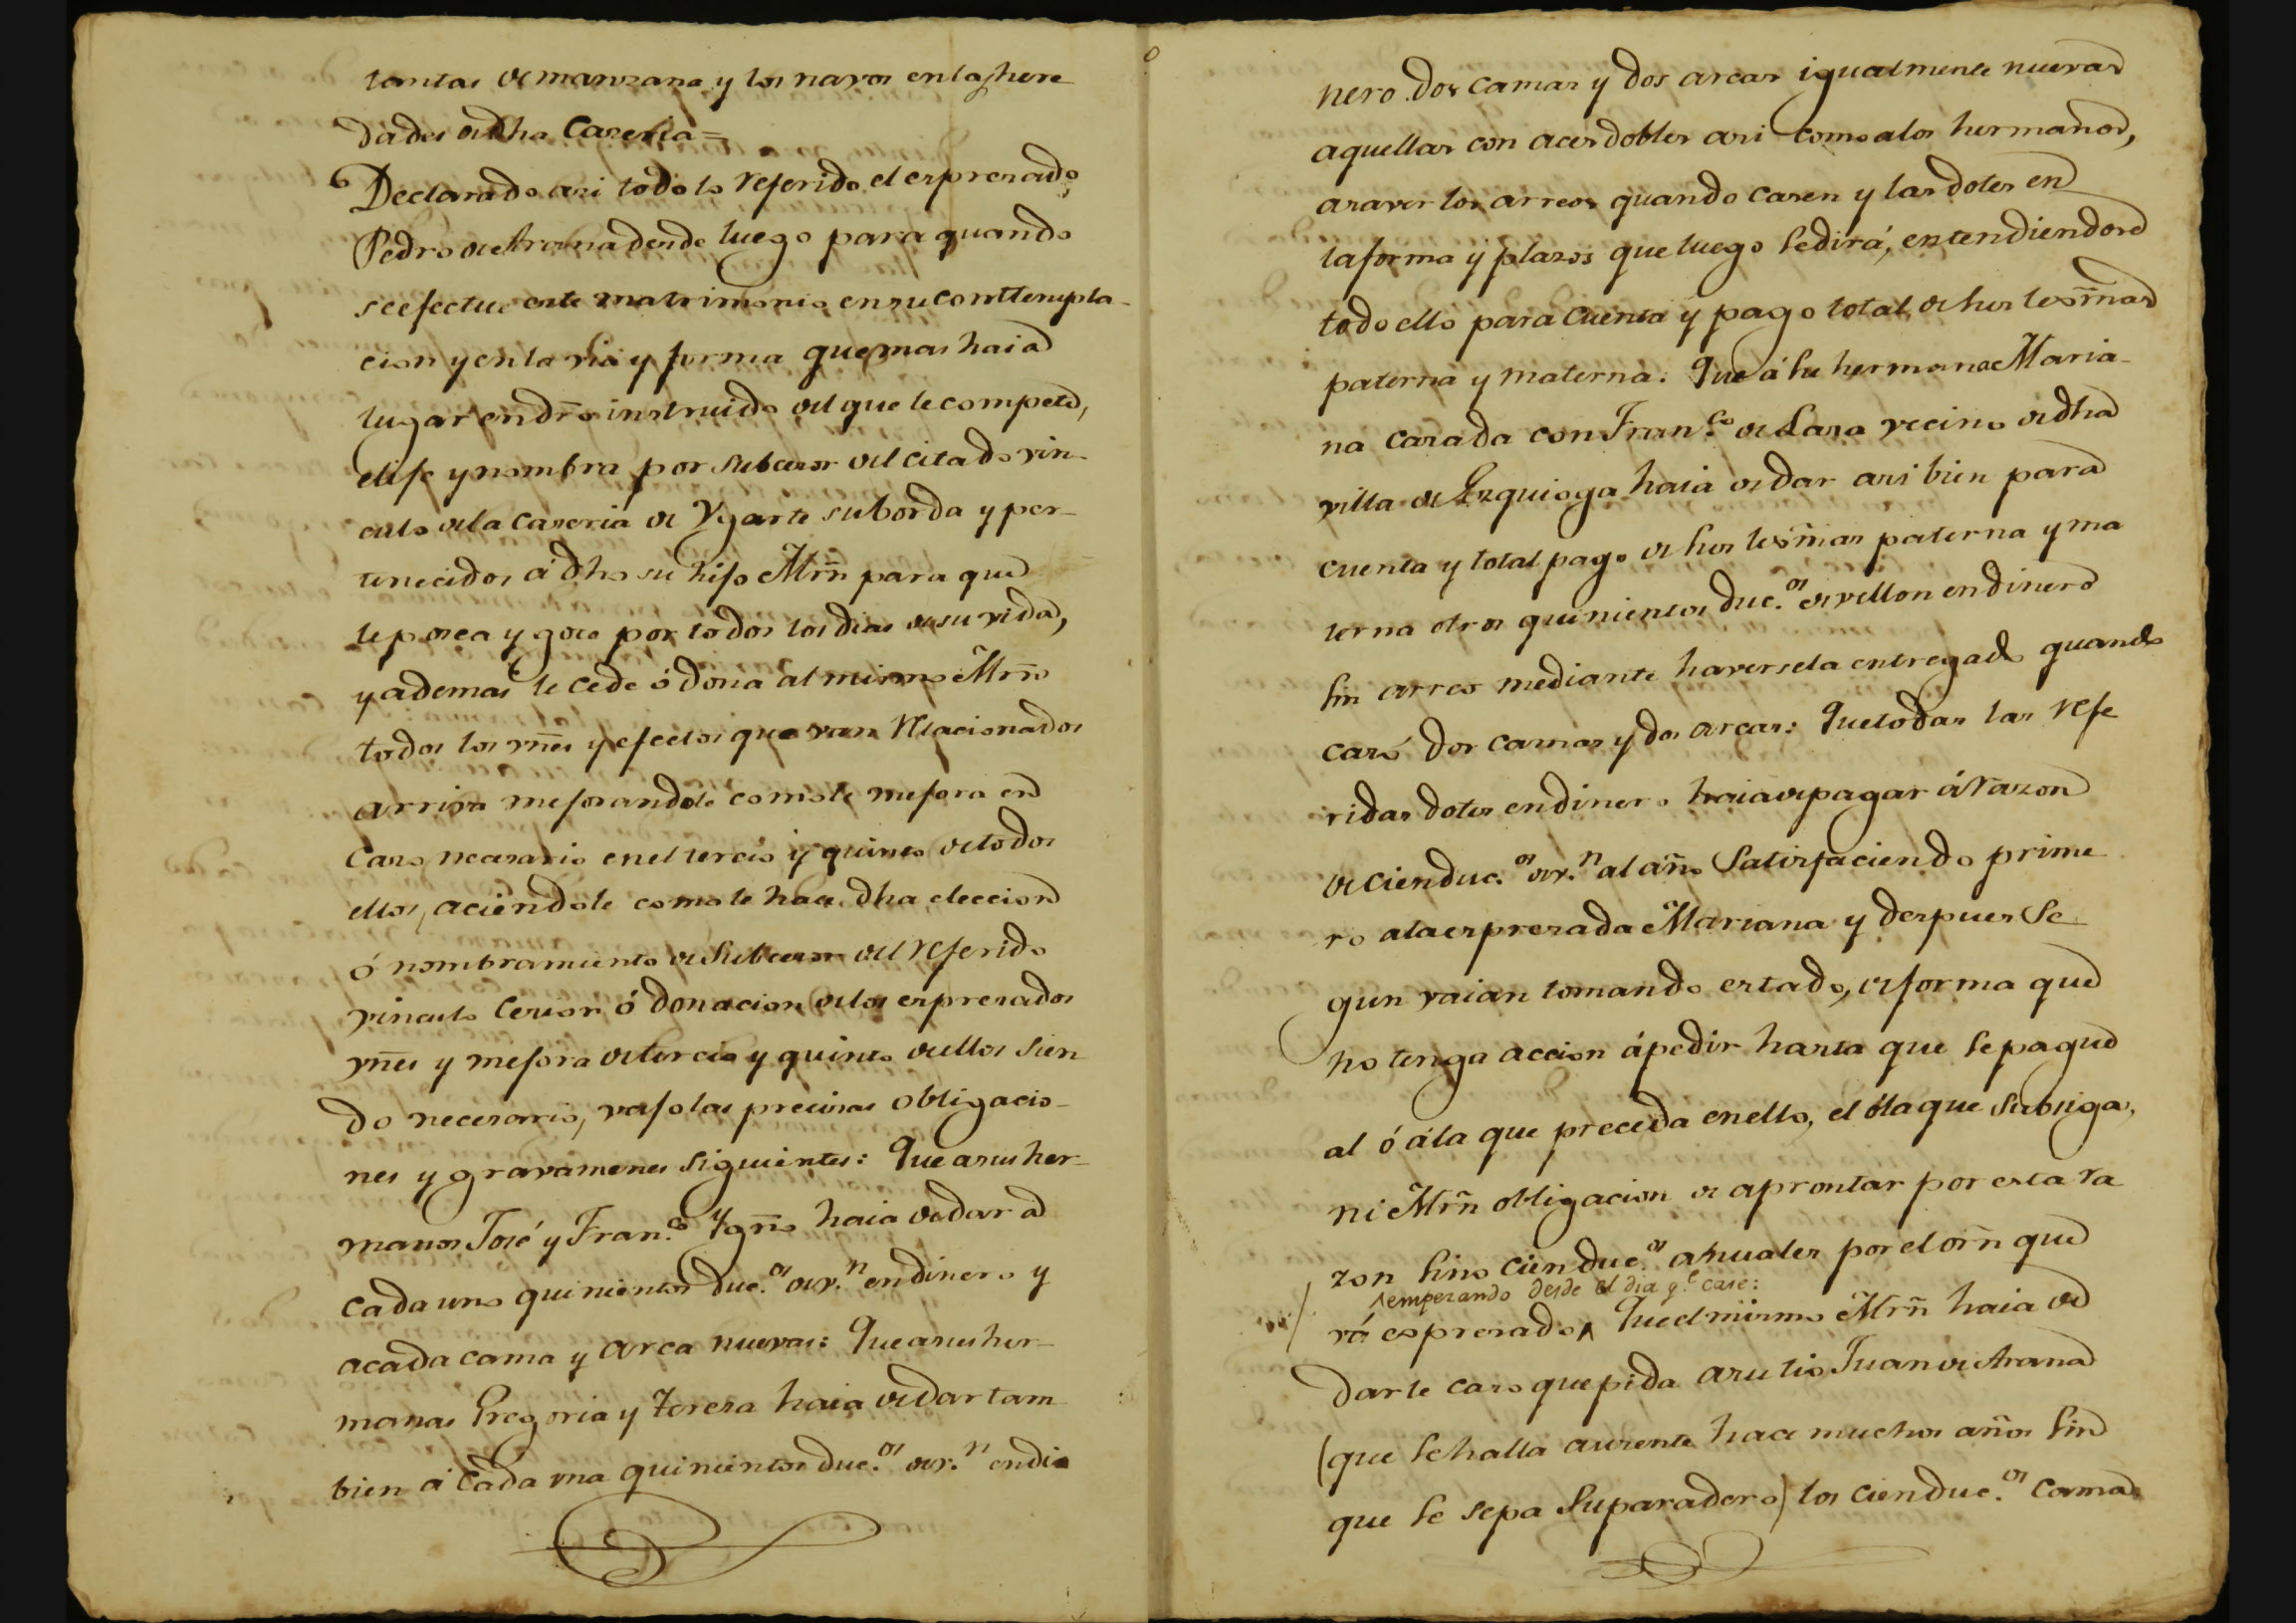 tantas de manzana y los navos en las here
dades de dha Caseria =
Declarado asi todo lo referido el expresado
Pedro de Arana desde luego para quando
se efectue este matrimonio en su conttempla-
cion y en la via y forma que mas haia
lugar en dro instruido del que le compete,
elije y nombra por subcesor del citado vin-
culo de la caseria de Ygarte su borda y per-
tenecidos á dho su hijo Mrn para que
le posea y goce por todos los dias de su vida,
y ademas le cede ó dona al mismo Mrn
todos los vnes y efectos que van relacionados
arriva mejorandole como le mejora en
caso necesario en el tercio y quinto de todos
ellos, aciendole como le hace dha eleccion
ó nombramiento de subcesor del referido
vinculo cesion ó donacion de los expresados
vnes y mejora de tercio y quinto de ellos sien
do necesario, vajo las precisas obligacio-
nes y gravamenes siguientes: Que a sus her-
manos José y Fran.co Ygno haia de dar a
cada uno quinientos duc.os de v.n en dinero y
a cada cama y arca nuevas: Que a sus her-
manas Gregoria y Teresa haia de dar tam
bien á cada una quinientos duc.os de v.n en di
nero dos camas y dos arcas igualmente nuevas
aquellas con aces dobles asi como a los hermanos,
a saver los arreos quando casen y las dotes en
la forma y plazos que luego se dirá, entendiendose
todo ello para cuenta y pago total de sus lexmas
paterna y materna: Que á su hermana Maria-
na casada con Fran.co de Lasa vecino de dha
villa de Ezquioga haia de dar asi bien para
cuenta y total pago de sus lexmas paterna y ma
terna otros quinientos duc.os de vellon en dinero
sin arreo mediante haversela entregado quando
casó dos camas y dos arcas: Que todas las refe
ridas dotes en dinero haia de pagar á razon
de cien duc.os de v.n al año satisfaciendo prime
ro a la expresada Mariana y despues se
gun vaian tomando estado, de forma que
no tenga accion á pedir hasta que se pague
al ó á la que preceda en ello, el ó la que subsiga,
ni Mrn obligacion de aprontar por esta ra
zon sino cien duc.os anuales por el orn que
empezando desde el dia q.e case:
vá expresado, Que el mismo Mrn haia de
darle caso que pida a su tio Juan de Arana
(que se halla ausente hace muchos años sin
que se sepa su paradero) los cien duc.os cama